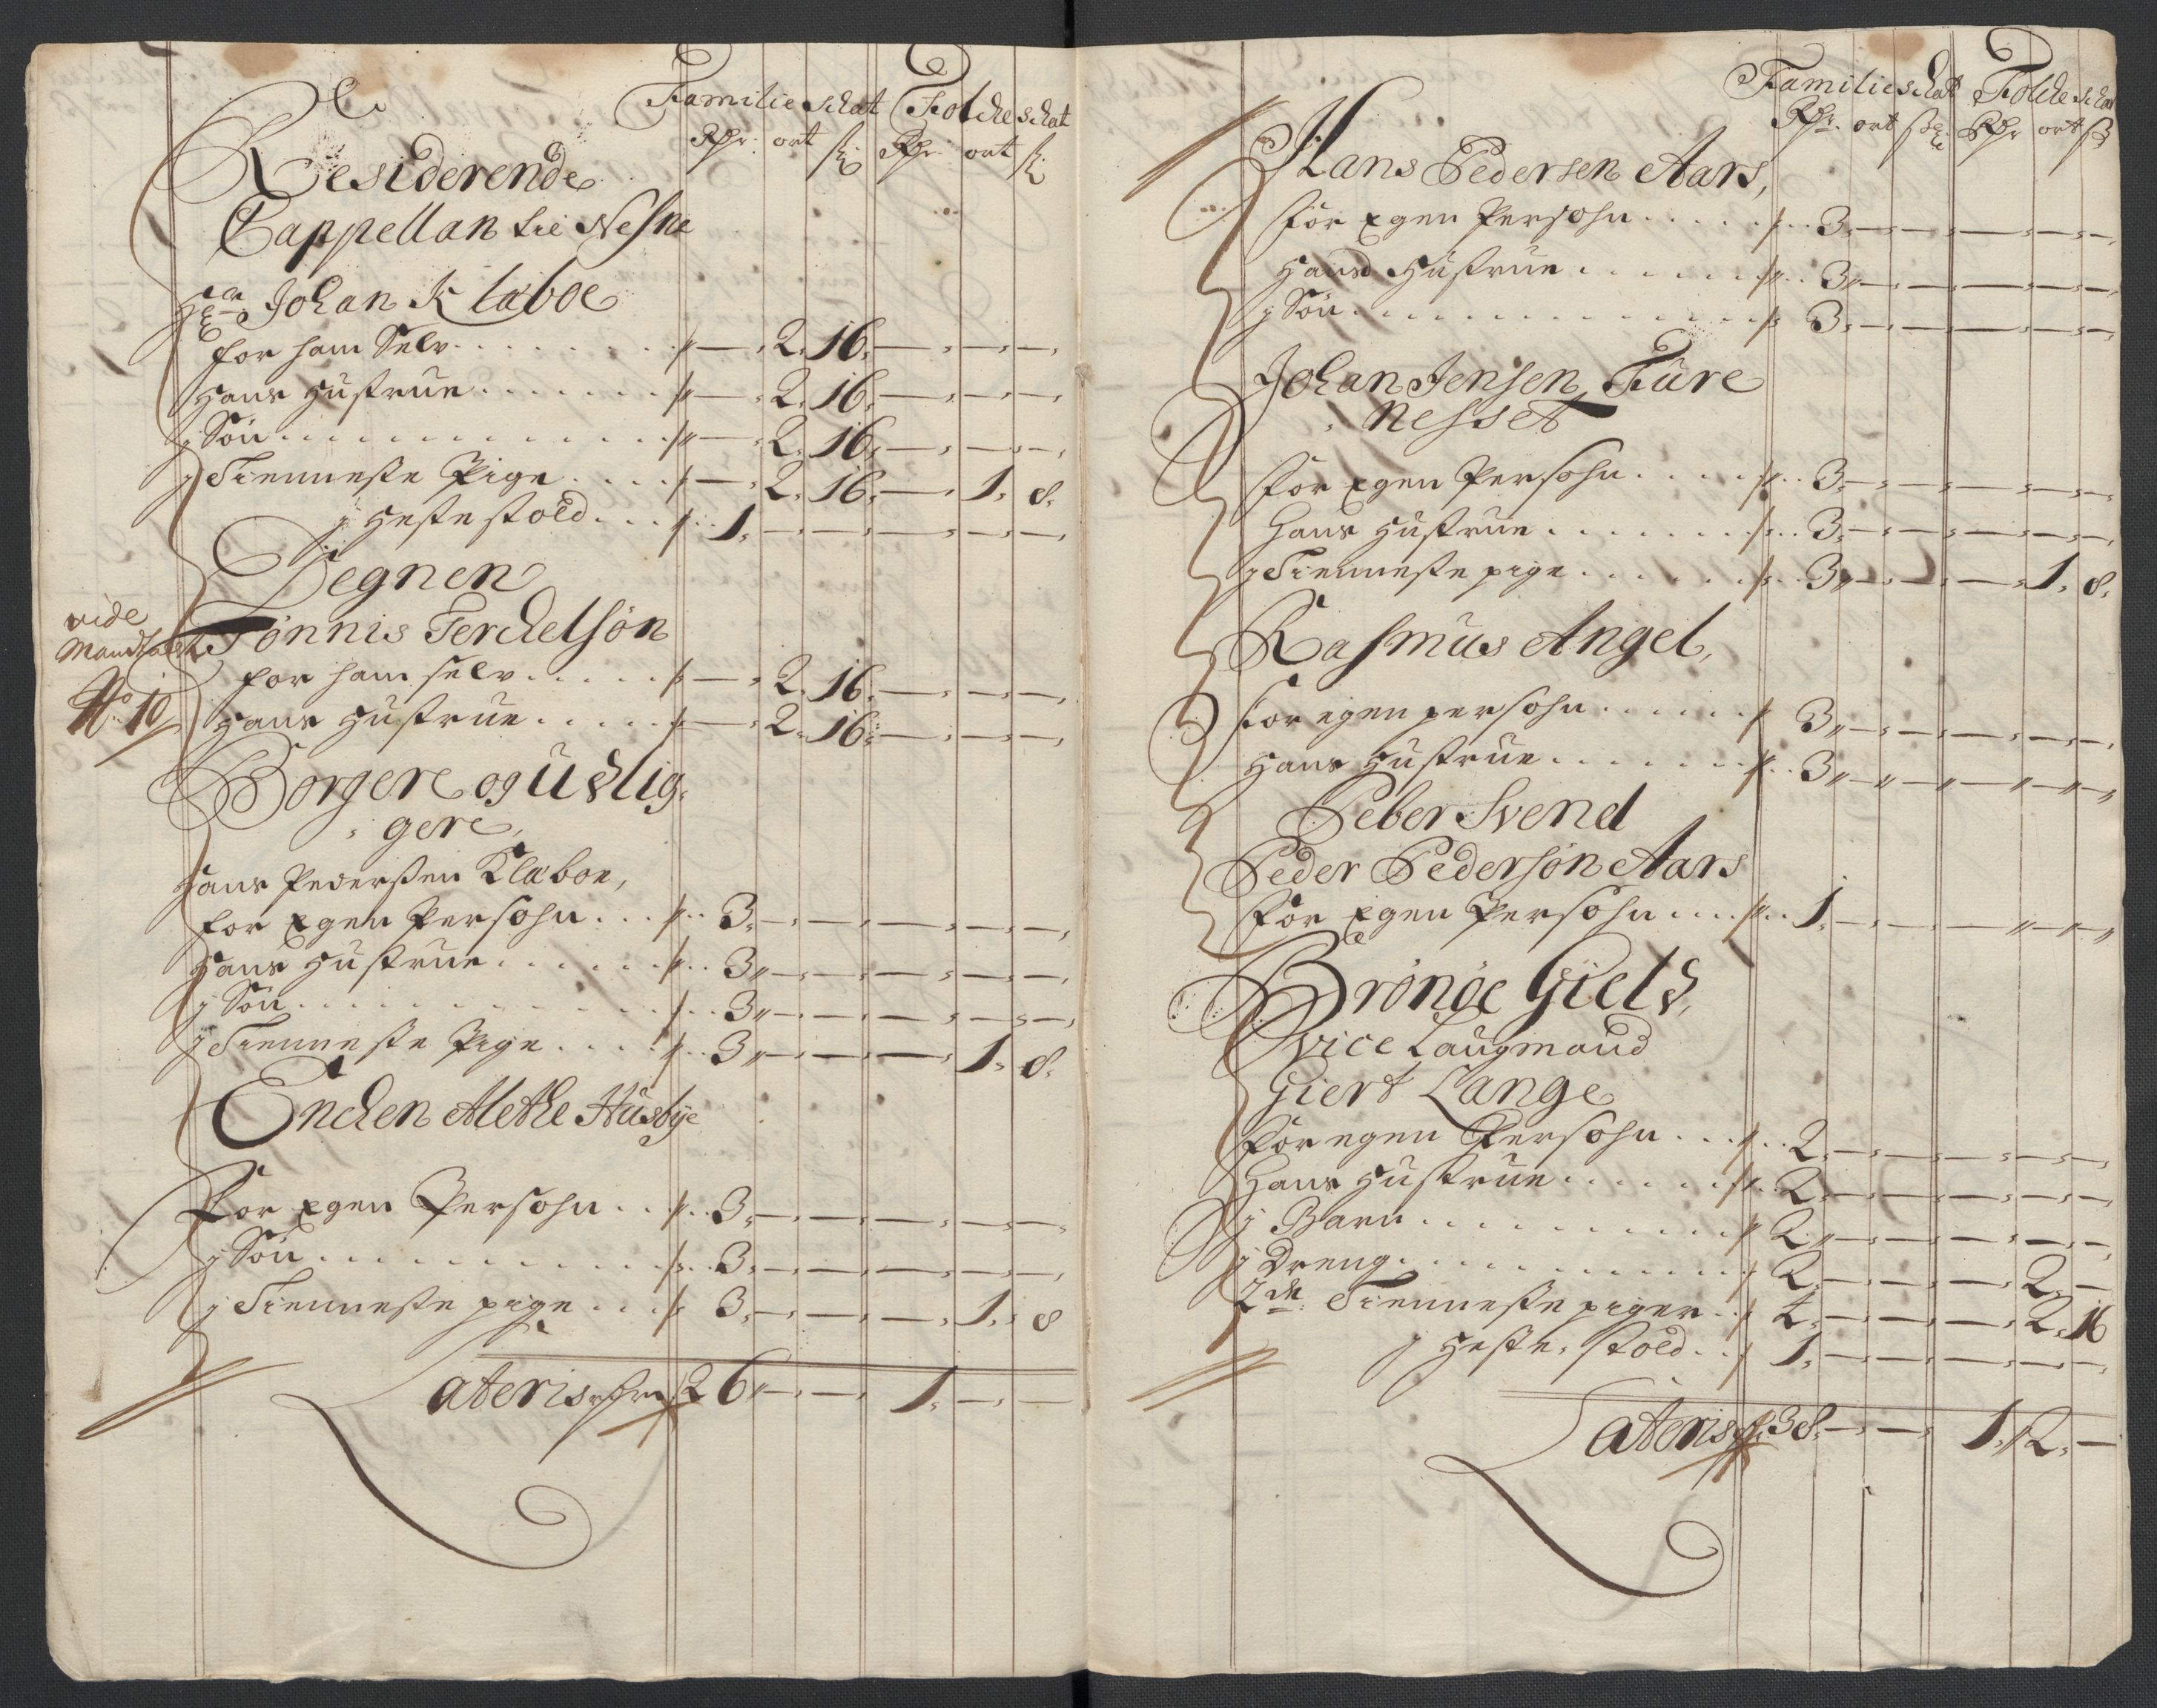 Familie schat Folche schat
Rdr ort ß Rdr ort ß
Residerende
Cappellan til Nesne
Hr Johan Klæboe
for ham Selv . . . — 2. 16. — — —
Hans Hustrue . . . — 2. 16. — — —
j Søn . . . — 2. 16. — — —
j Tienneste Pige . . . — 2. 16. — 1. 8.
j Hestestold . . . 1. — — — — —
Degnen
vide
Mandtallet
No 10
Tønnis Terchelsøn
for ham selv . . . — 2. 16. — — —
Hans Hustrue . . . — 2. 16. — — —
Borgere og Udlig-
gere,
Hans Pedersen Klæboe,
for Egen Persohn . . . 3. — — — — —
Hans Hustrue . . . 3. — — — — —
j Søn . . . 3. — — — — —
j Tienneste Pige . . . 3. — — — 1. 8.
Enchen Alethe Husbye
For Egen Persohn . . . 3. — — — — —
j Søn . . . 3. — — — — —
j Tienneste pige . . . 3. — — — 1. 8
Lateris 26. — — 1. — —
Familie schat Folche schat
Rdr. ort ß Rdr ort ß
Hans Pedersen Aars,
for Egen Persohn . . . 3. — — — — —
Hans Hustrue . . . 3. — — — — —
j Søn . . . 3. — — — — —
Johan Jensen Fure
nesset
for Egen Persohn . . . 3. — — — — —
Hans Hustrue . . . 3. — — — — —
j Tienneste pige . . . 3. — — — 1. 8.
Rasmus Angel,
for egen persohn . . . 3. — — — — —
Hans Hustrue . . . 3. — — — — —
Peber Svend
Peder Pedersøn Aars
for Egen Persohn . . . 1. — — — — —
Brønøe Gield,
vice Laugmand
Giert Lange
for egen Persohn . . . 2. — — — — —
Hans Hustrue . . . 2. — — — — —
j Barn . . . 2. — — — — —
j Dreng . . . 2. — — — 2. —
2de Tienneste piger . . 4. — — — 2. 16
j Heste stold . . 1. — — — — —
Lateris 38. — — 1. 2. —